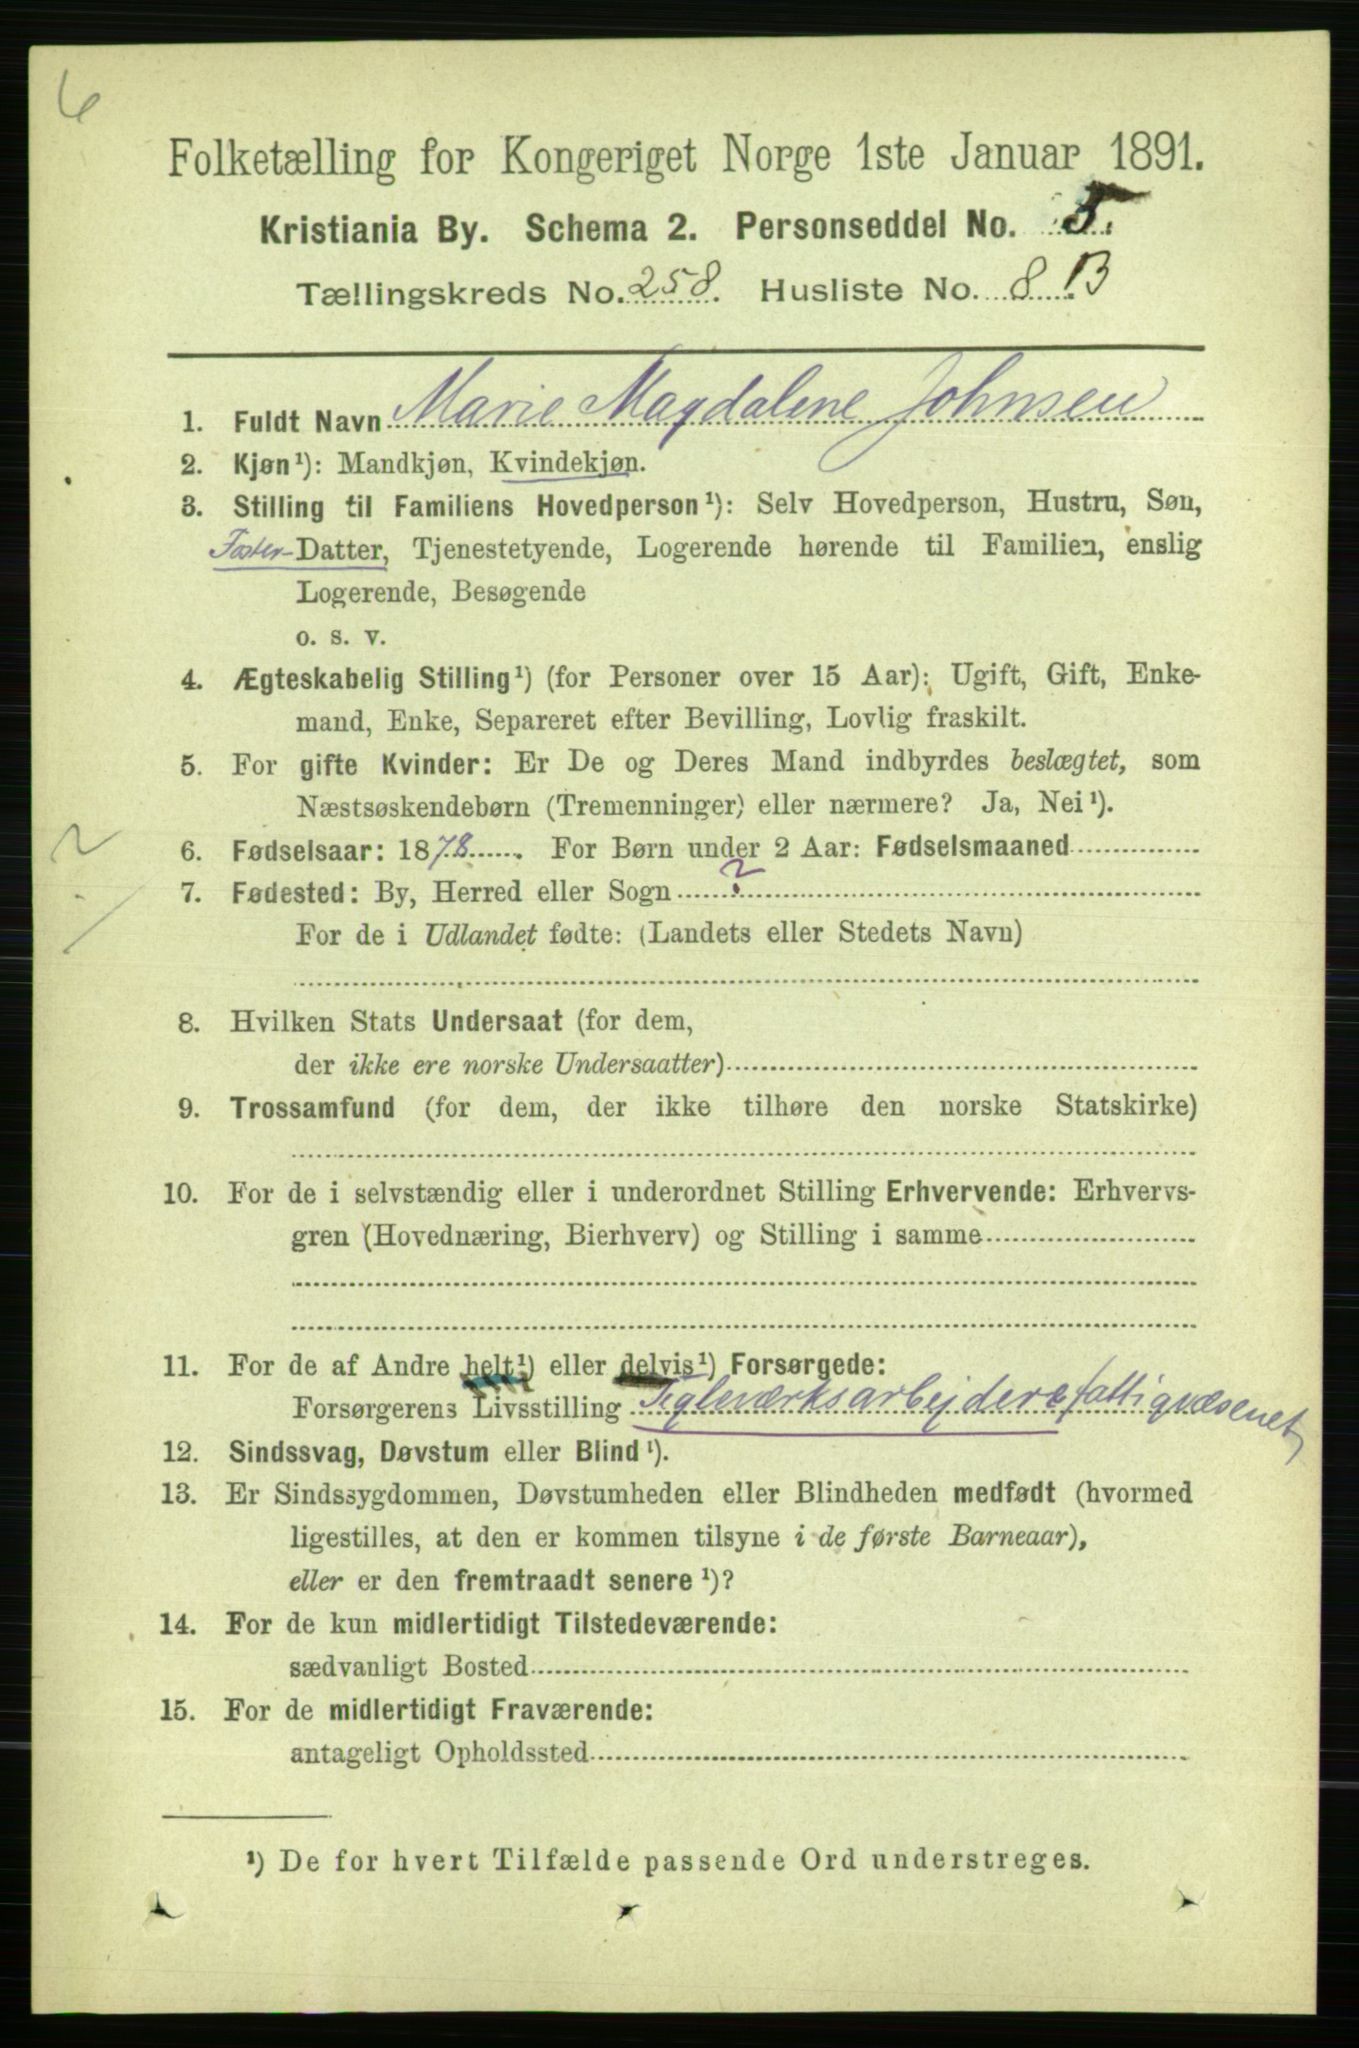 6
Folketælling for Kongeriget Norge 1ste Januar 1891.
Kristiania By. Schema 2. Personseddel No. 5.
Tællingskreds No. 258. Husliste No. 8 B
1. Fuldt Navn Marie Magdalene Johnsen
2. Kjøn¹): Mandkjøn, Kvindekjøn.
3. Stilling til Familiens Hovedperson¹): Selv Hovedperson, Hustru, Søn,
Foster-Datter, Tjenestetyende, Logerende hørende til Familien, enslig
Logerende, Besøgende
o. s. v.
4. Ægteskabelig Stilling¹) (for Personer over 15 Aar): Ugift, Gift, Enke-
mand, Enke, Separeret efter Bevilling, Lovlig fraskilt.
5. For gifte Kvinder: Er De og Deres Mand indbyrdes beslægtet, som
Næstsøskendebørn (Tremenninger) eller nærmere? Ja, Nei¹).
6. Fødselsaar: 1878. For Børn under 2 Aar: Fødselsmaaned
7. Fødested: By, Herred eller Sogn ?
For de i Udlandet fødte: (Landets eller Stedets Navn)
?
8. Hvilken Stats Undersaat (for dem,
der ikke ere norske Undersaatter)
9. Trossamfund (for dem, der ikke tilhøre den norske Statskirke)
10. For de i selvstændig eller i underordnet Stilling Erhvervende: Erhvervs-
gren (Hovednæring, Bierhverv) og Stilling i samme
11. For de af Andre helt¹) eller delvis¹) Forsørgede:
Forsørgerens Livsstilling Teglværksarbejder fattigvæsenet
12. Sindssvag, Døvstum eller Blind¹).
13. Er Sindssygdommen, Døvstumheden eller Blindheden medfødt (hvormed
ligestilles, at den er kommen tilsyne i de første Barneaar),
eller er den fremtraadt senere¹)?
14. For de kun midlertidigt Tilstedeværende:
sædvanligt Bosted
15. For de midlertidigt Fraværende:
antageligt Opholdssted
¹) De for hvert Tilfælde passende Ord understreges.